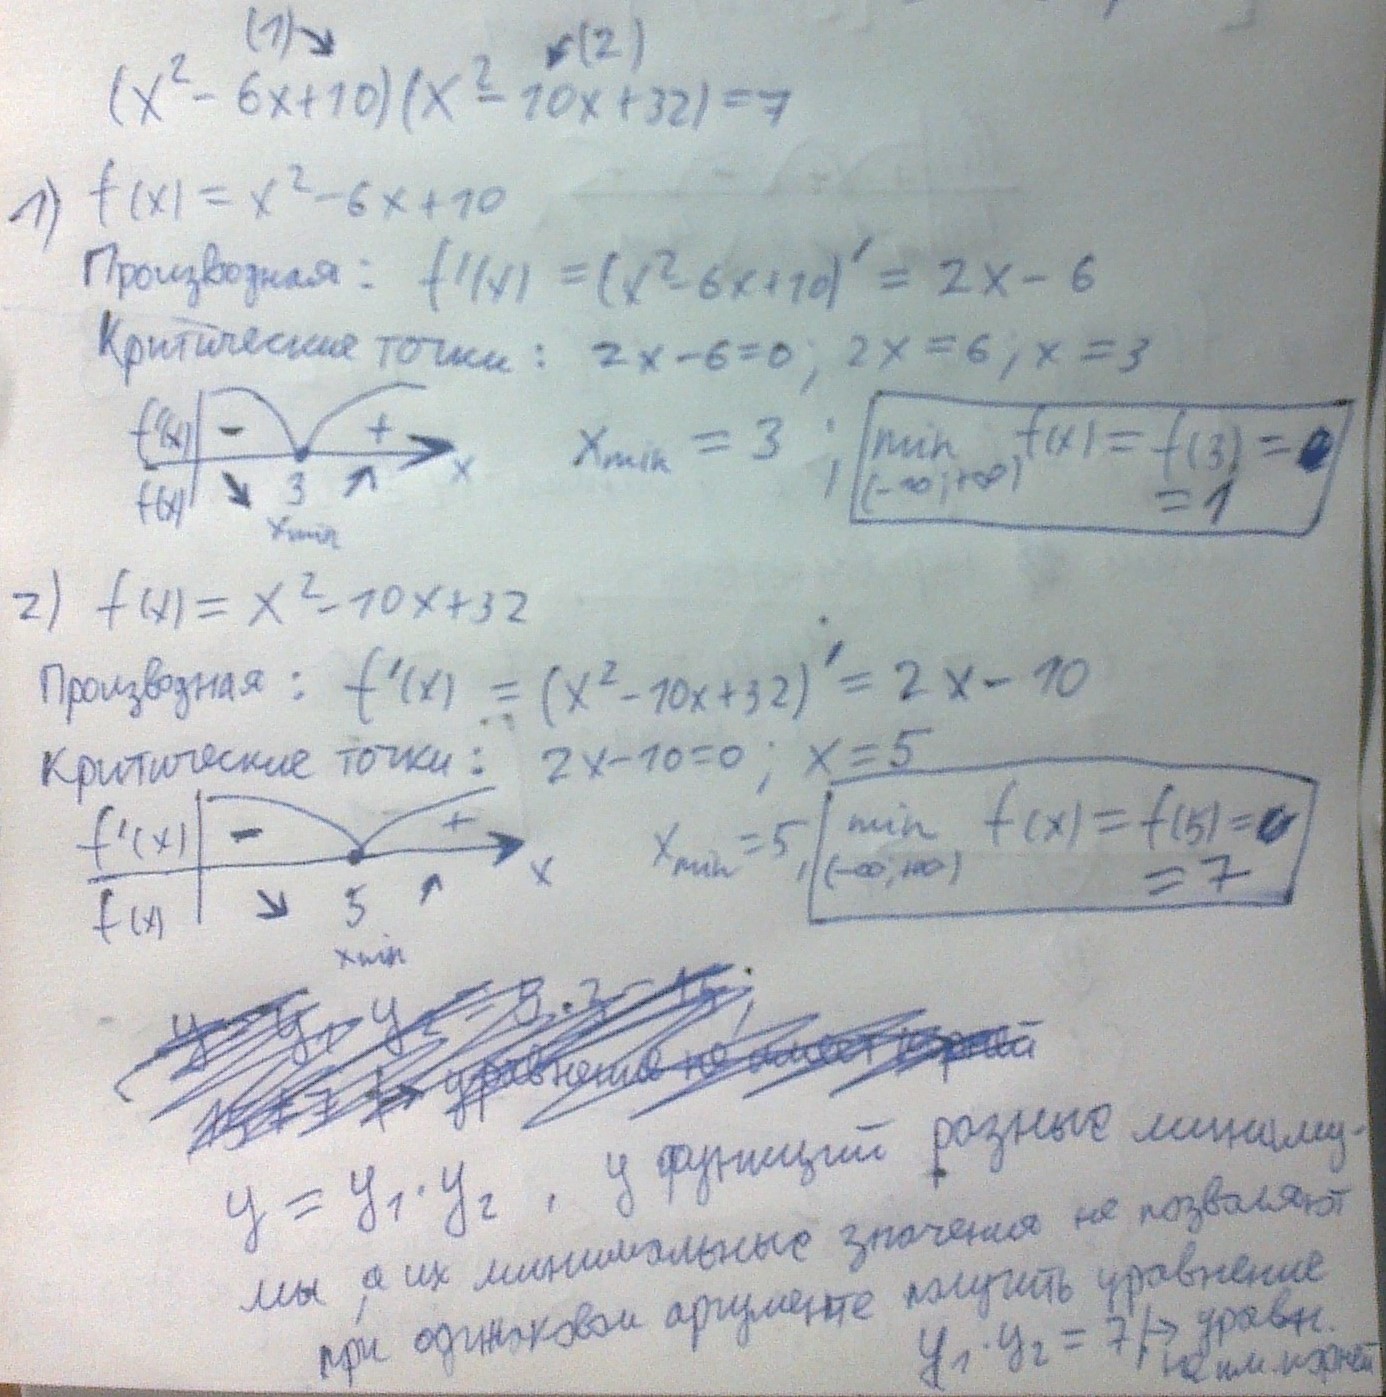 (1) (2)
(x² - 6x+10)(x² - 10x+32)=7
1) f(x) = x²-6x+10
Производная: f'(x) = (x²-6x+10)' = 2x-6
Критические точки: 2x-6=0; 2x=6; x=3
f'(x) - + x
f(x) 3
xmin
xmin = 3; min f(x) = f(3) =
(-∞;+∞) = 1
2) f(x) = x²-10x+32
Производная: f'(x) = (x²-10x+32)' = 2x-10
Критические точки: 2x-10=0; x=5
f'(x) - + x
f(x) 5
xmin
xmin=5, min f(x) = f(5) =
(-∞;+∞) = 7
уравнение не имеет корней
y = y₁·y₂, у функций разные миниму-
мы, а их минимальные значения не позволяют
при одинаковом аргументе получить уравнение
y₁·y₂ = 7 |→ уравн.
не им. корней